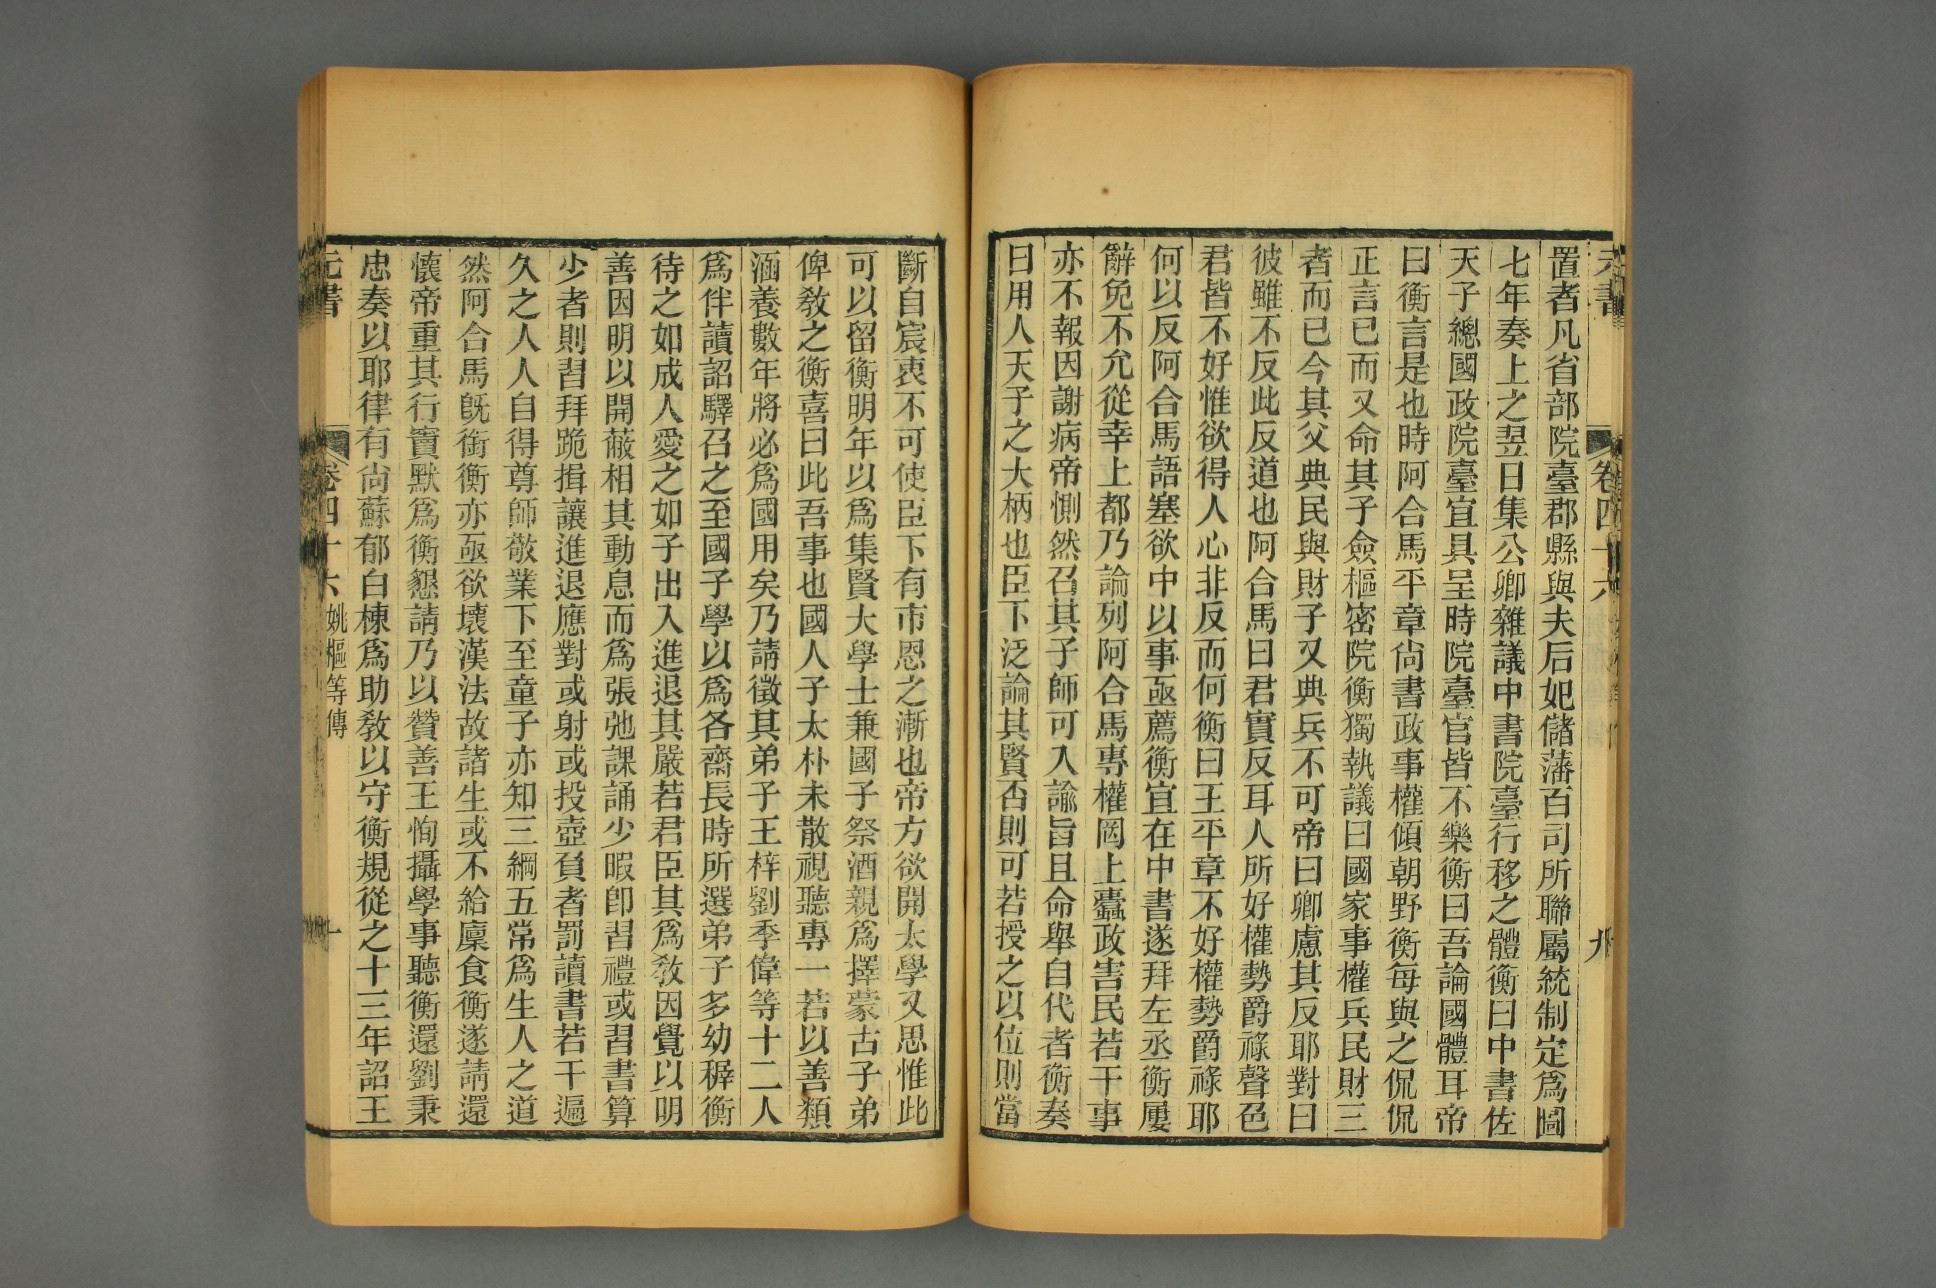 元書
卷四十六
九
置者凡省部院臺郡縣與夫后妃儲藩百司所聯屬統制定爲圖
七年奏上之翌日集公卿雜議中書院臺行移之體衡曰中書佐
天子總國政院臺宜具呈時院臺官皆不樂衡曰吾論國體耳帝
曰衡言是也時阿合馬平章尙書政事權傾朝野衡每與之侃侃
正言已而又命其子僉樞密院衡獨執議曰國家事權兵民財三
者而已今其父典民與財子又典兵不可帝曰卿慮其反耶對曰
彼雖不反此反道也阿合馬曰君實反耳人所好權勢爵祿聲色
君皆不好惟欲得人心非反而何衡曰王平章不好權勢爵祿耶
何以反阿合馬語塞欲中以事亟薦衡宜在中書遂拜左丞衡屢
辭免不允從幸上都乃論列阿合馬專權罔上蠹政害民若干事
亦不報因謝病帝惻然召其子師可入諭旨且命舉自代者衡奏
曰用人天子之大柄也臣下泛論其賢否則可若授之以位則當
斷自宸衷不可使臣下有市恩之漸也帝方欲開太學又思惟此
可以留衡明年以爲集賢大學士兼國子祭酒親爲擇蒙古子弟
俾敎之衡喜曰此吾事也國人子太朴未散視聽專一若以善類
涵養數年將必爲國用矣乃請徵其弟子王梓劉季偉等十二人
爲伴讀詔驛召之至國子學以爲各齋長時所選弟子多幼穉衡
待之如成人愛之如子出入進退其嚴若君臣其爲敎因覺以明
善因明以開蔽相其動息而爲張弛課誦少暇卽習禮或習書算
少者則習拜跪揖讓進退應對或射或投壺負者罰讀書若干遍
久之人人自得尊師敬業下至童子亦知三綱五常爲生人之道
然阿合馬旣銜衡亦亟欲壞漢法故諸生或不給廩食衡遂請還
懷帝重其行竇默爲衡懇請乃以贊善王恂攝學事聽衡還劉秉
忠奏以耶律有尙蘇郁白棟爲助敎以守衡規從之十三年詔王
元書
卷四十六
姚樞等傳